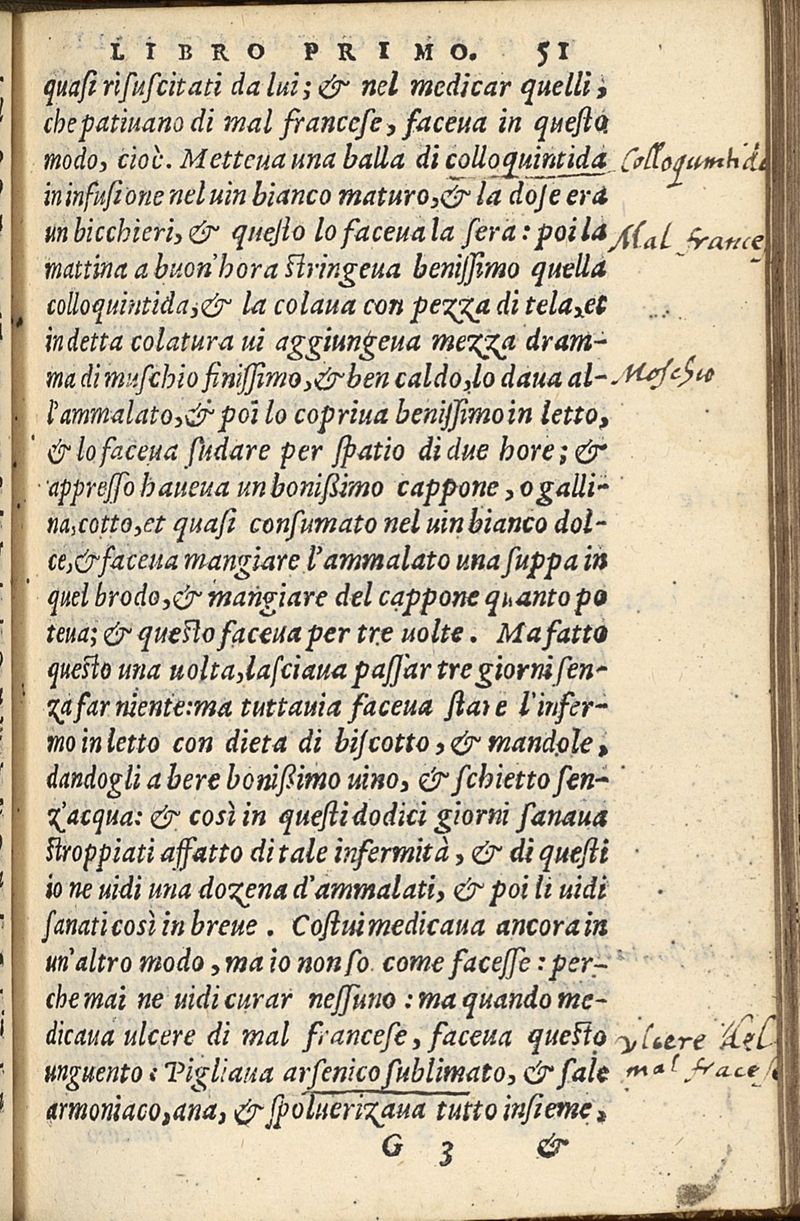 LIBRO PRIMO. 51
quasi risuscitati da lui; & nel medicar quelli,
che patiuano di mal francese, faceua in questo
modo, cioè. Metteua una balla di colloquintida
Colloquintida
in infusione nel uin bianco maturo, & la dose era
un bicchieri, & questo lo faceua la sera: poi la
Mal frances
mattina a buon'hora stringeua benissimo quella
colloquintida, & la colaua con pezza di tela, et
in detta colatura ui aggiungeua mezza dram-
ma di muschio finissimo, & ben caldo, lo daua al-
Moschio
l'ammalato, & poi lo copriua benissimo in letto,
& lo faceua sudare per spatio di due hore; &
appresso haueua un bonißimo cappone, o galli-
na, cotto, et quasi consumato nel uin bianco dol-
ce, & faceua mangiare l'ammalato una suppa in
quel brodo, & mangiare del cappone quanto po
teua; & questo faceua per tre uolte. Ma fatto
questo una uolta, lasciaua passar tre giorni sen-
za far niente: ma tuttauia faceua stare l'infer-
mo in letto con dieta di biscotto, & mandole,
dandogli a bere bonißimo uino, & schietto sen-
z'acqua: & così in questi dodici giorni sanaua
stroppiati affatto di tale infermità, & di questi
io ne uidi una dozena d'ammalati, & poi li uidi
sanati così in breue. Costui medicaua ancora in
un'altro modo, ma io non so come facesse: per-
che mai ne uidi curar nessuno: ma quando me-
dicaua ulcere di mal francese, faceua questo
ylcere del
unguento: Pigliaua arsenico sublimato, & sale
mal fracese
armoniaco, ana, & spoluerizaua tutto insieme,
G 3 &